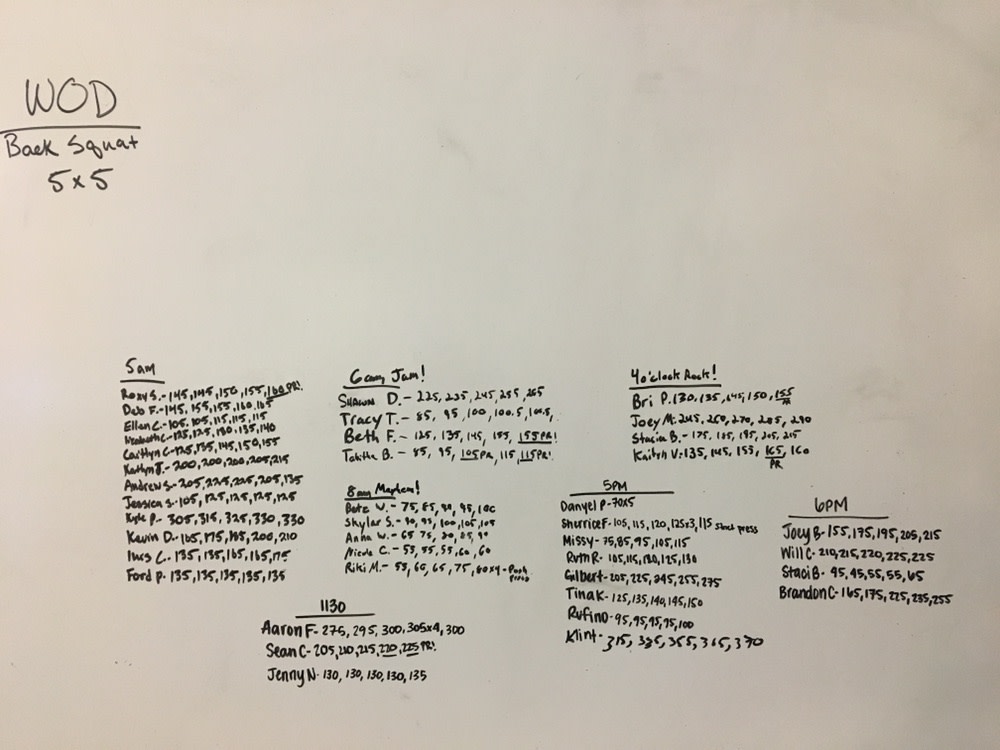 WOD
Back Squat
5x5
5am
Roxy S.-145,145,150,155,160PR!
Deb F.-145,155,155,160,165
Ellen C.-105,105,115,115,115
C-125,125,130,135,140
Caitlyn C-125,135,145,150,155
Kaitlyn J.-200,200,200,205,215
Andrew S-205,225,225,205,135
Jessica S.-105,125,125,125,125
Kyle P.-305,315,325,330,330
Kevin D.-165,175,185,200,210
C.-135,135,165,165,175
Ford P.-135,135,135,135,135
6am Jam!
SHAWN D.-225,235,245,255,265
Tracy T.-85,95,100,100.5,
Beth F.-125,135,145,155,155PR!
Tabitha B.-85,95,105PR,115,115PR!
8am Mayhem!
V.-75,85,90,95,100
Skylar S.-90,95,100,105,105
Anna W.-65,75,80,85,90
Nicole C.-55,55,55,60,60
Riki M.-55,60,65,75,80x4-Push Press
1130
Aaron F-275,295,300,305x4,300
Sean C-205,210,215,220,225PR!
Jenny N-130,130,130,130,135
4o'clock Rock!
Bri P.130,135,145,150,155
PR
Joey M.245,250,270,285,290
Stacia B.-175,185,195,205,215
Kaitlyn V:135,145,155,165,160
PR
5PM
Danyel P-70x5
Sherrice F-105,115,120,125x3,115 strict press
Missy-75,85,95,105,115
Ruth R-105,115,120,125,130
Gilbert-205,225,245,255,275
Tina K-125,135,140,145,150
Rufino-95,95,95,95,100
Klint-315,335,355,365,370
6PM
Joey B-155,175,195,205,215
Will C-210,215,220,225,225
Staci B-45,45,55,55,65
Brandon C-165,175,225,235,255